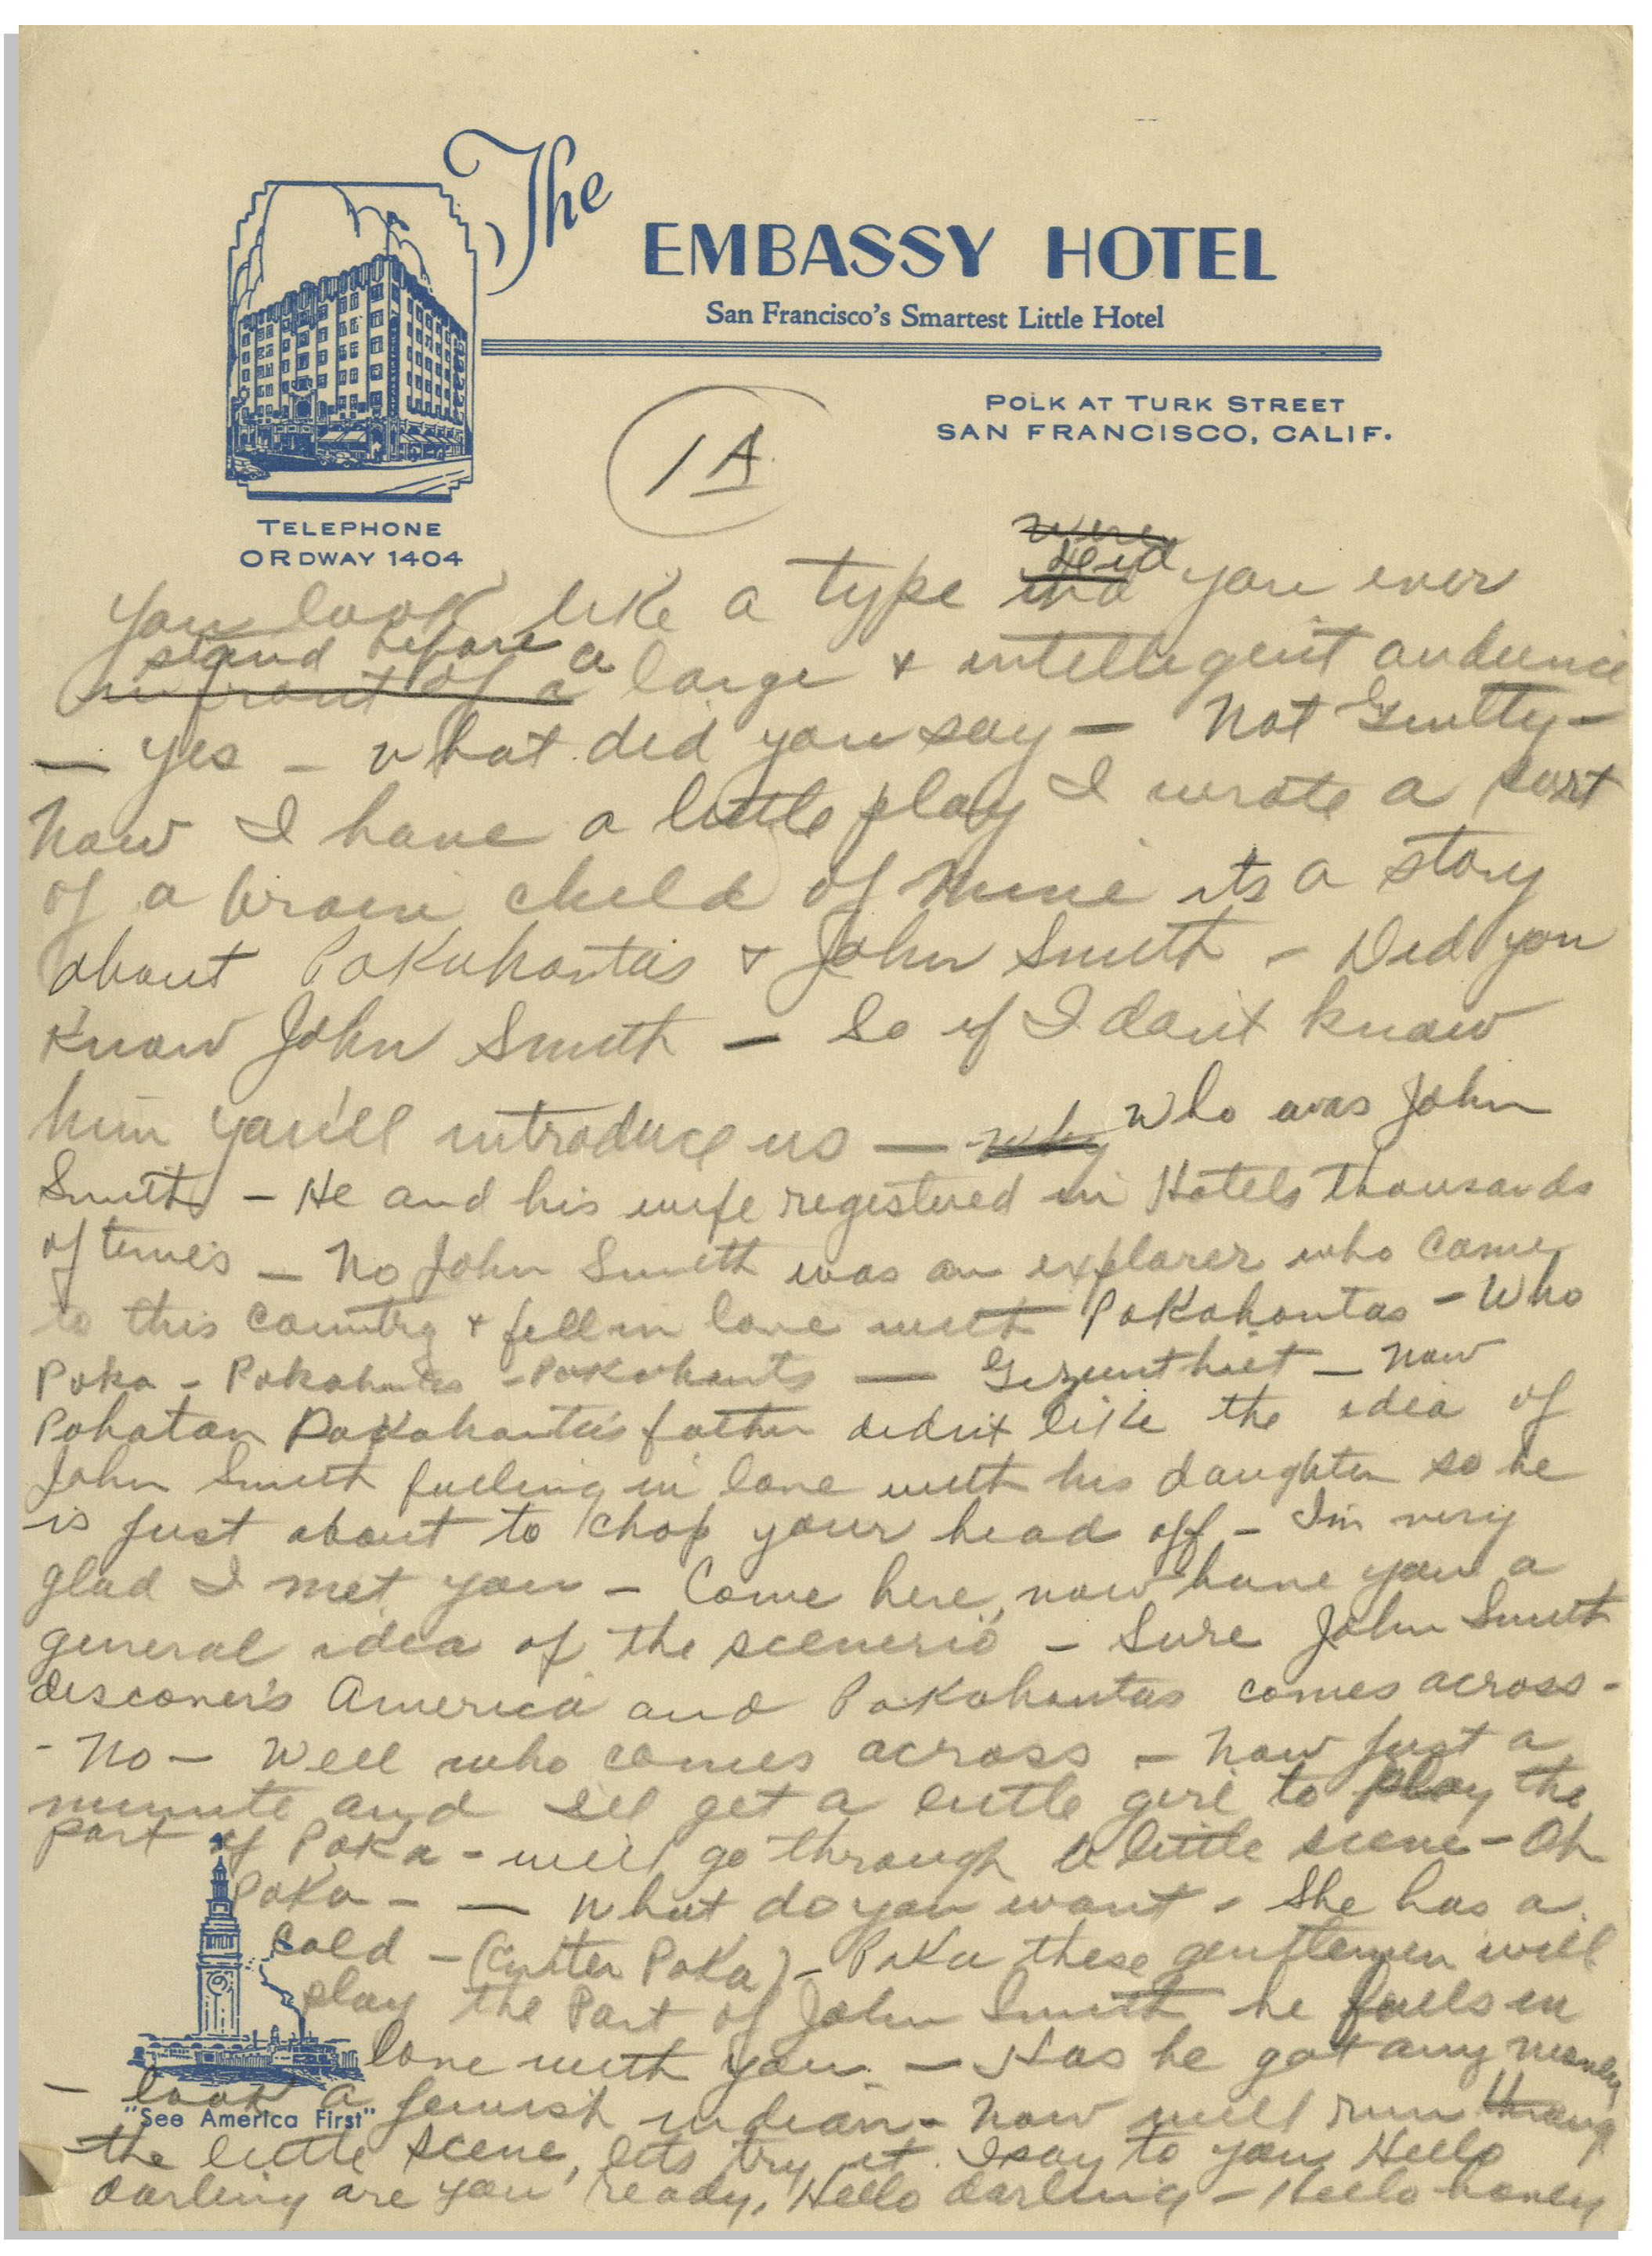 The
EMBASSY HOTEL
San Francisco's Smartest Little Hotel
POLK AT TURK STREET
SAN FRANCISCO, CALIF.
TELEPHONE
ORDWAY 1404
1A
were
Did
You look like a type you ever
stand before a
in front of a large + intelligent audience
— yes – what did you say – Not Guilty –
Now I have a little play I wrote a sort
of a brain child of mine its a story
about Pokahontas + John Smith – Did you
know John Smith – So if I don't know
him you'll introduce us — why who was John
Smith – He and his wife registered in Hotels thousands
of times – No John Smith was an explorer who came
to this country + fell in love with Pokahontas – Who
Poka – Pokahantas – Pokohants — Gezunthiet – now
Pohatan Pokahanta's father didn't like the idea of
John Smith falling in love with his daughter so he
is just about to chop your head off – I'm very
glad I met you – Come here, now have you a
general idea of the scenerio – Sure John Smith
discover's America and Pokahontas comes across –
– No – Well who comes across – Now just a
minute and I'll get a little girl to play the
part of Poka – will go through a little scene – Oh
Poka – — What do you want – She has a
Cold – (Enter Poka) – Poka these gentlemen will
play the Part of John Smith he falls in
love with you – Has he got any money
– look a jewish indian – Now will run throug
"See America First"
the little scene, lets try it. I say to you Hello
darling are you ready, Hello darling – Hello honey